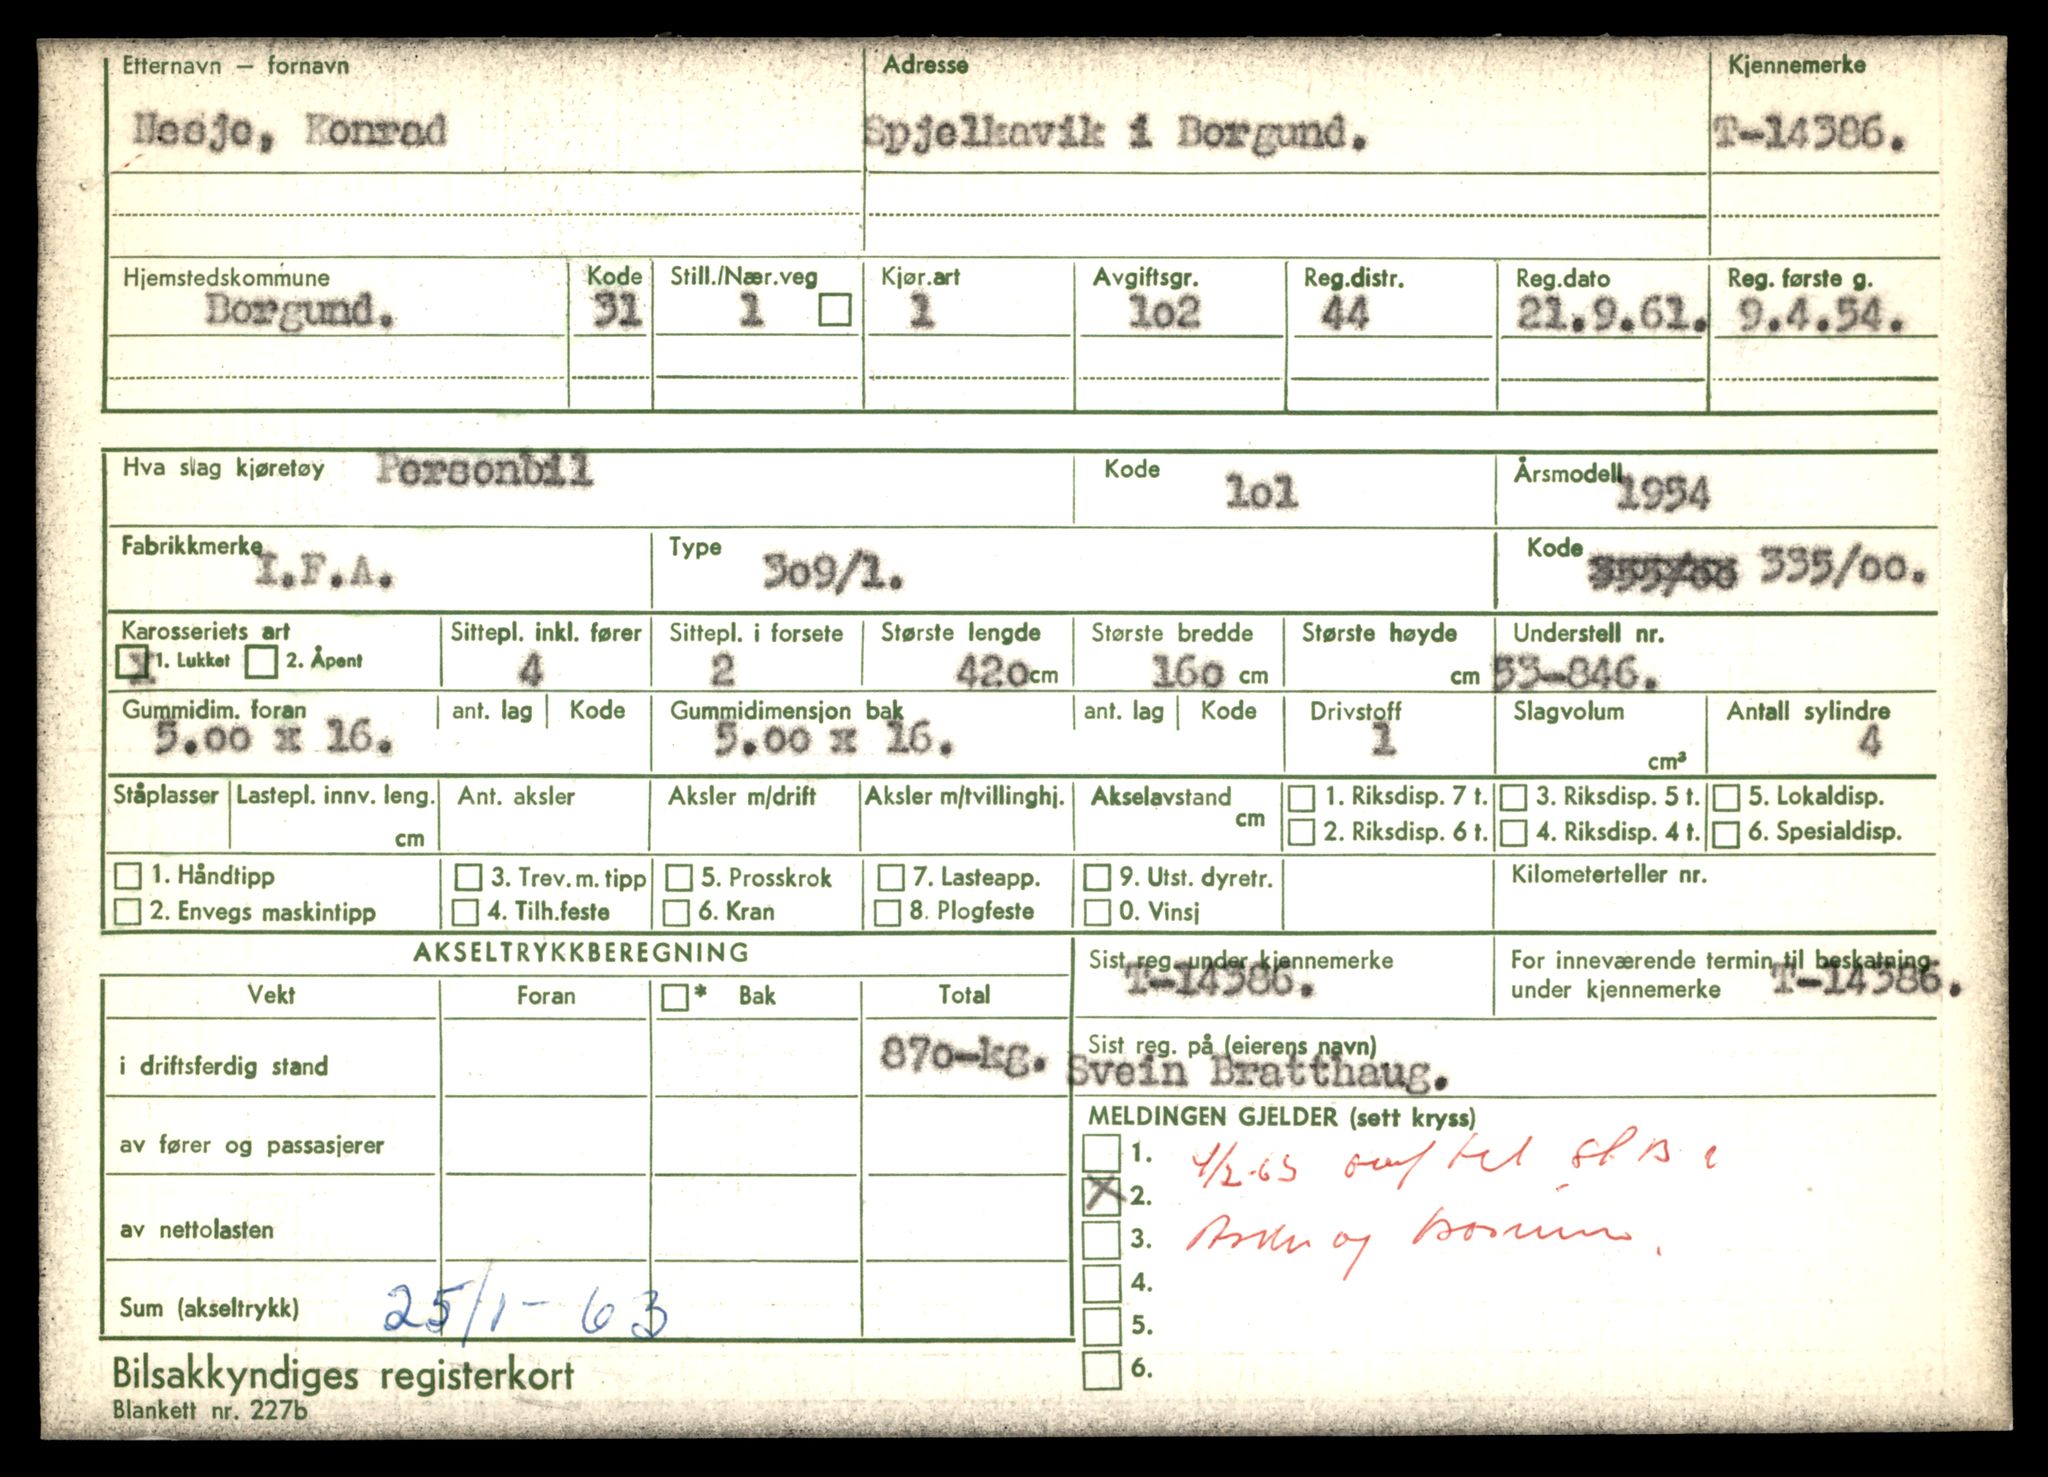 Etternavn — fornavn Adresse Kjennemerke
Nesje, Konrad Spjelkavik i Borgund. T-14386.
Hjemstedskommune Kode Still./Nær.veg Kjør.art Avgiftsgr. Reg.distr. Reg.dato Reg. første g.
Borgund. 31 1 1 1o2 44 21.9.61. 9.4.54.
Hva slag kjøretøy Personbil Kode 1o1 Årsmodell 1954
Fabrikkmerke I.F.A. Type 3o9/1. Kode 335/oo.
Karosseriets art Sittepl. inkl. fører Sittepl. i forsete Største lengde Største bredde Største høyde Understell nr.
X 1. Lukket 2. Åpent 4 2 42o cm 16o cm cm 53-846.
Gummidim. foran ant. lag Kode Gummidimensjon bak ant. lag Kode Drivstoff Slagvolum Antall sylindre
5.oo x 16. 5.oo x 16. 1 cm³ 4
Ståplasser Lastepl. innv. leng. Ant. aksler Aksler m/drift Aksler m/tvillinghj. Akselavstand 1. Riksdisp. 7 t. 3. Riksdisp. 5 t. 5. Lokaldisp.
cm cm 2. Riksdisp. 6 t. 4. Riksdisp. 4 t. 6. Spesialdisp.
1. Håndtipp 3. Trev. m. tipp 5. Prosskrok 7. Lasteapp. 9. Utst. dyretr. Kilometerteller nr.
2. Envegs maskintipp 4. Tilh.feste 6. Kran 8. Plogfeste 0. Vinsj
AKSELTRYKKBEREGNING Sist reg. under kjennemerke For inneværende termin til beskatning
T-14386. under kjennemerke T-14386.
Vekt Foran * Bak Total
i driftsferdig stand 87o-kg. Sist reg. på (eierens navn)
Svein Bratthaug.
MELDINGEN GJELDER (sett kryss)
av fører og passasjerer 1.
X 2.
av nettolasten 3. og
4.
Sum (akseltrykk) 25/1-63
5.
6.
Bilsakkyndiges registerkort
Blankett nr. 227b